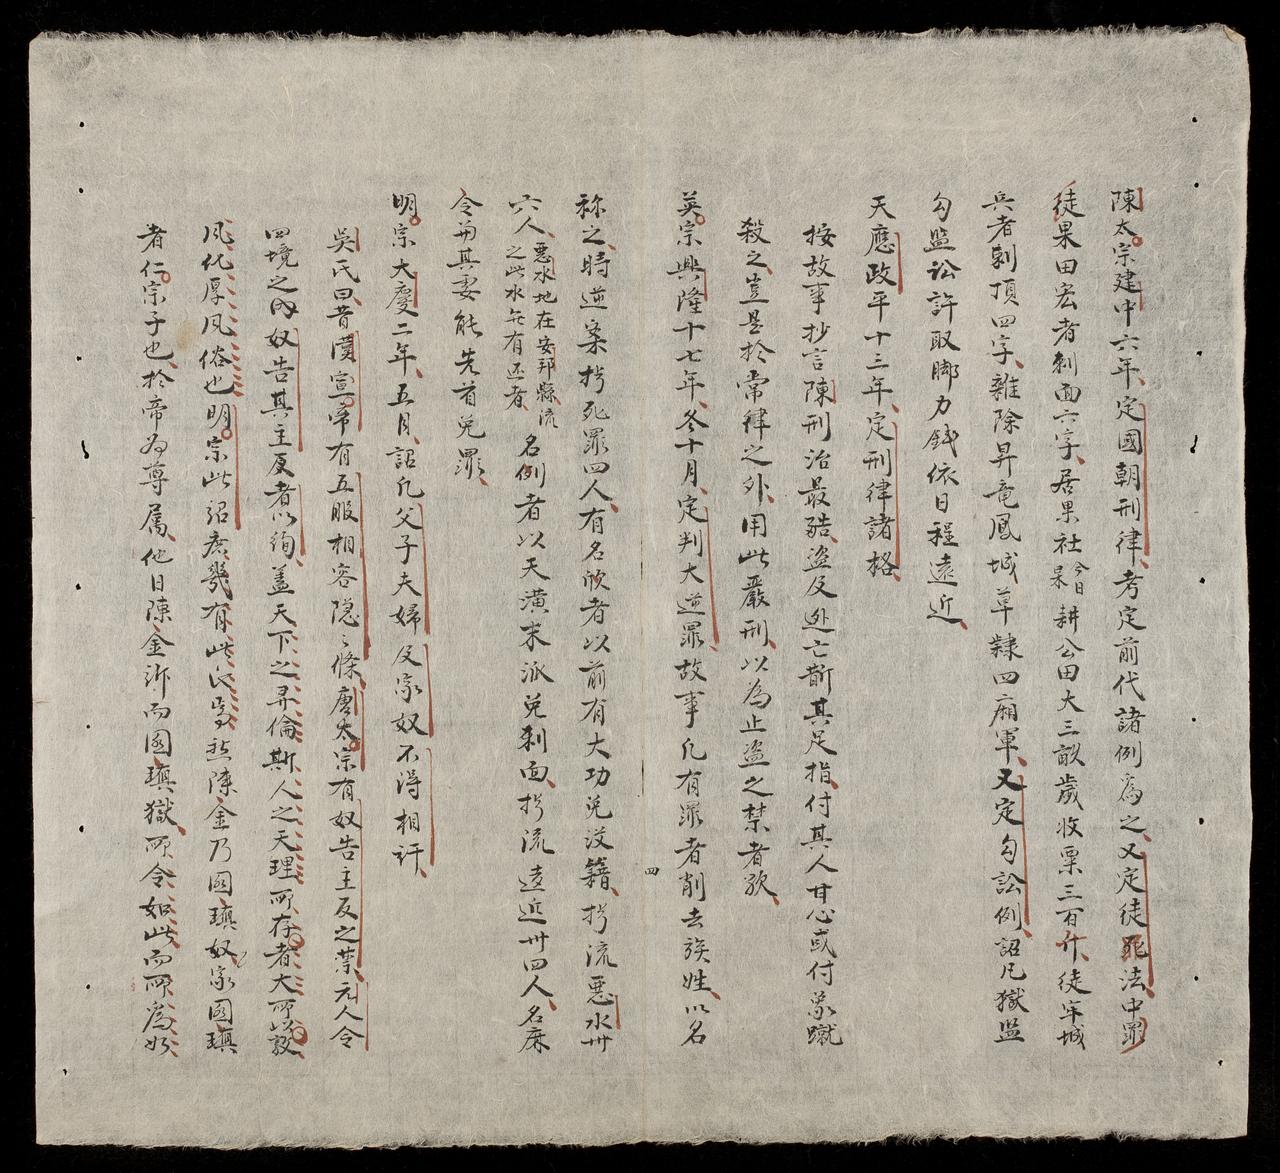 陳太宗建中六年定國朝刑律考定前代諸例為之又定徒罪法中罪
徒果田宏者刺面六字居果社今日杲耕公田大三畝歲收粟三百升徒牢城
兵者剌頂四字雜除昇竜鳳城草隸四廂軍又定勾訟例詔凡獄監
勾監訟許取脚力錢依日程遠近
天應政平十三年定刑律諸格
按故事抄言陳刑治最酷盗及逃亡斬其足指付其人甘心或付象蹴
殺之豈是於常律之外用此嚴刑以為止盗之禁者歟
英宗興隆十七年冬十月定判大逆罪故事凡有罪者削去族姓以名
稱之時逆案擬死罪四人有名欣者以前有大功免没籍擬流惡水卅
六人惡水地在安邦縣流之此水無有还者名例者以天潢末派免刺面擬流遠近卅四人名麻
令每其妻能先首免罪
明宗大慶二年五月詔凡父子夫婦及家奴不得相訐
吳氏曰昔漢宣帝有五服相容隐之條唐太宗有奴告主反之禁元人令
四境之内奴告其主反者以徇盖天下之彛倫斯人之天理所存者大所以敦
風化厚風俗也明宗此詔庶幾有此心焉然陳金乃國瑱奴家國瑱
者仁宗子也於帝為尊屬他日陳金訴而國瑱獄所令如此而所為如
四